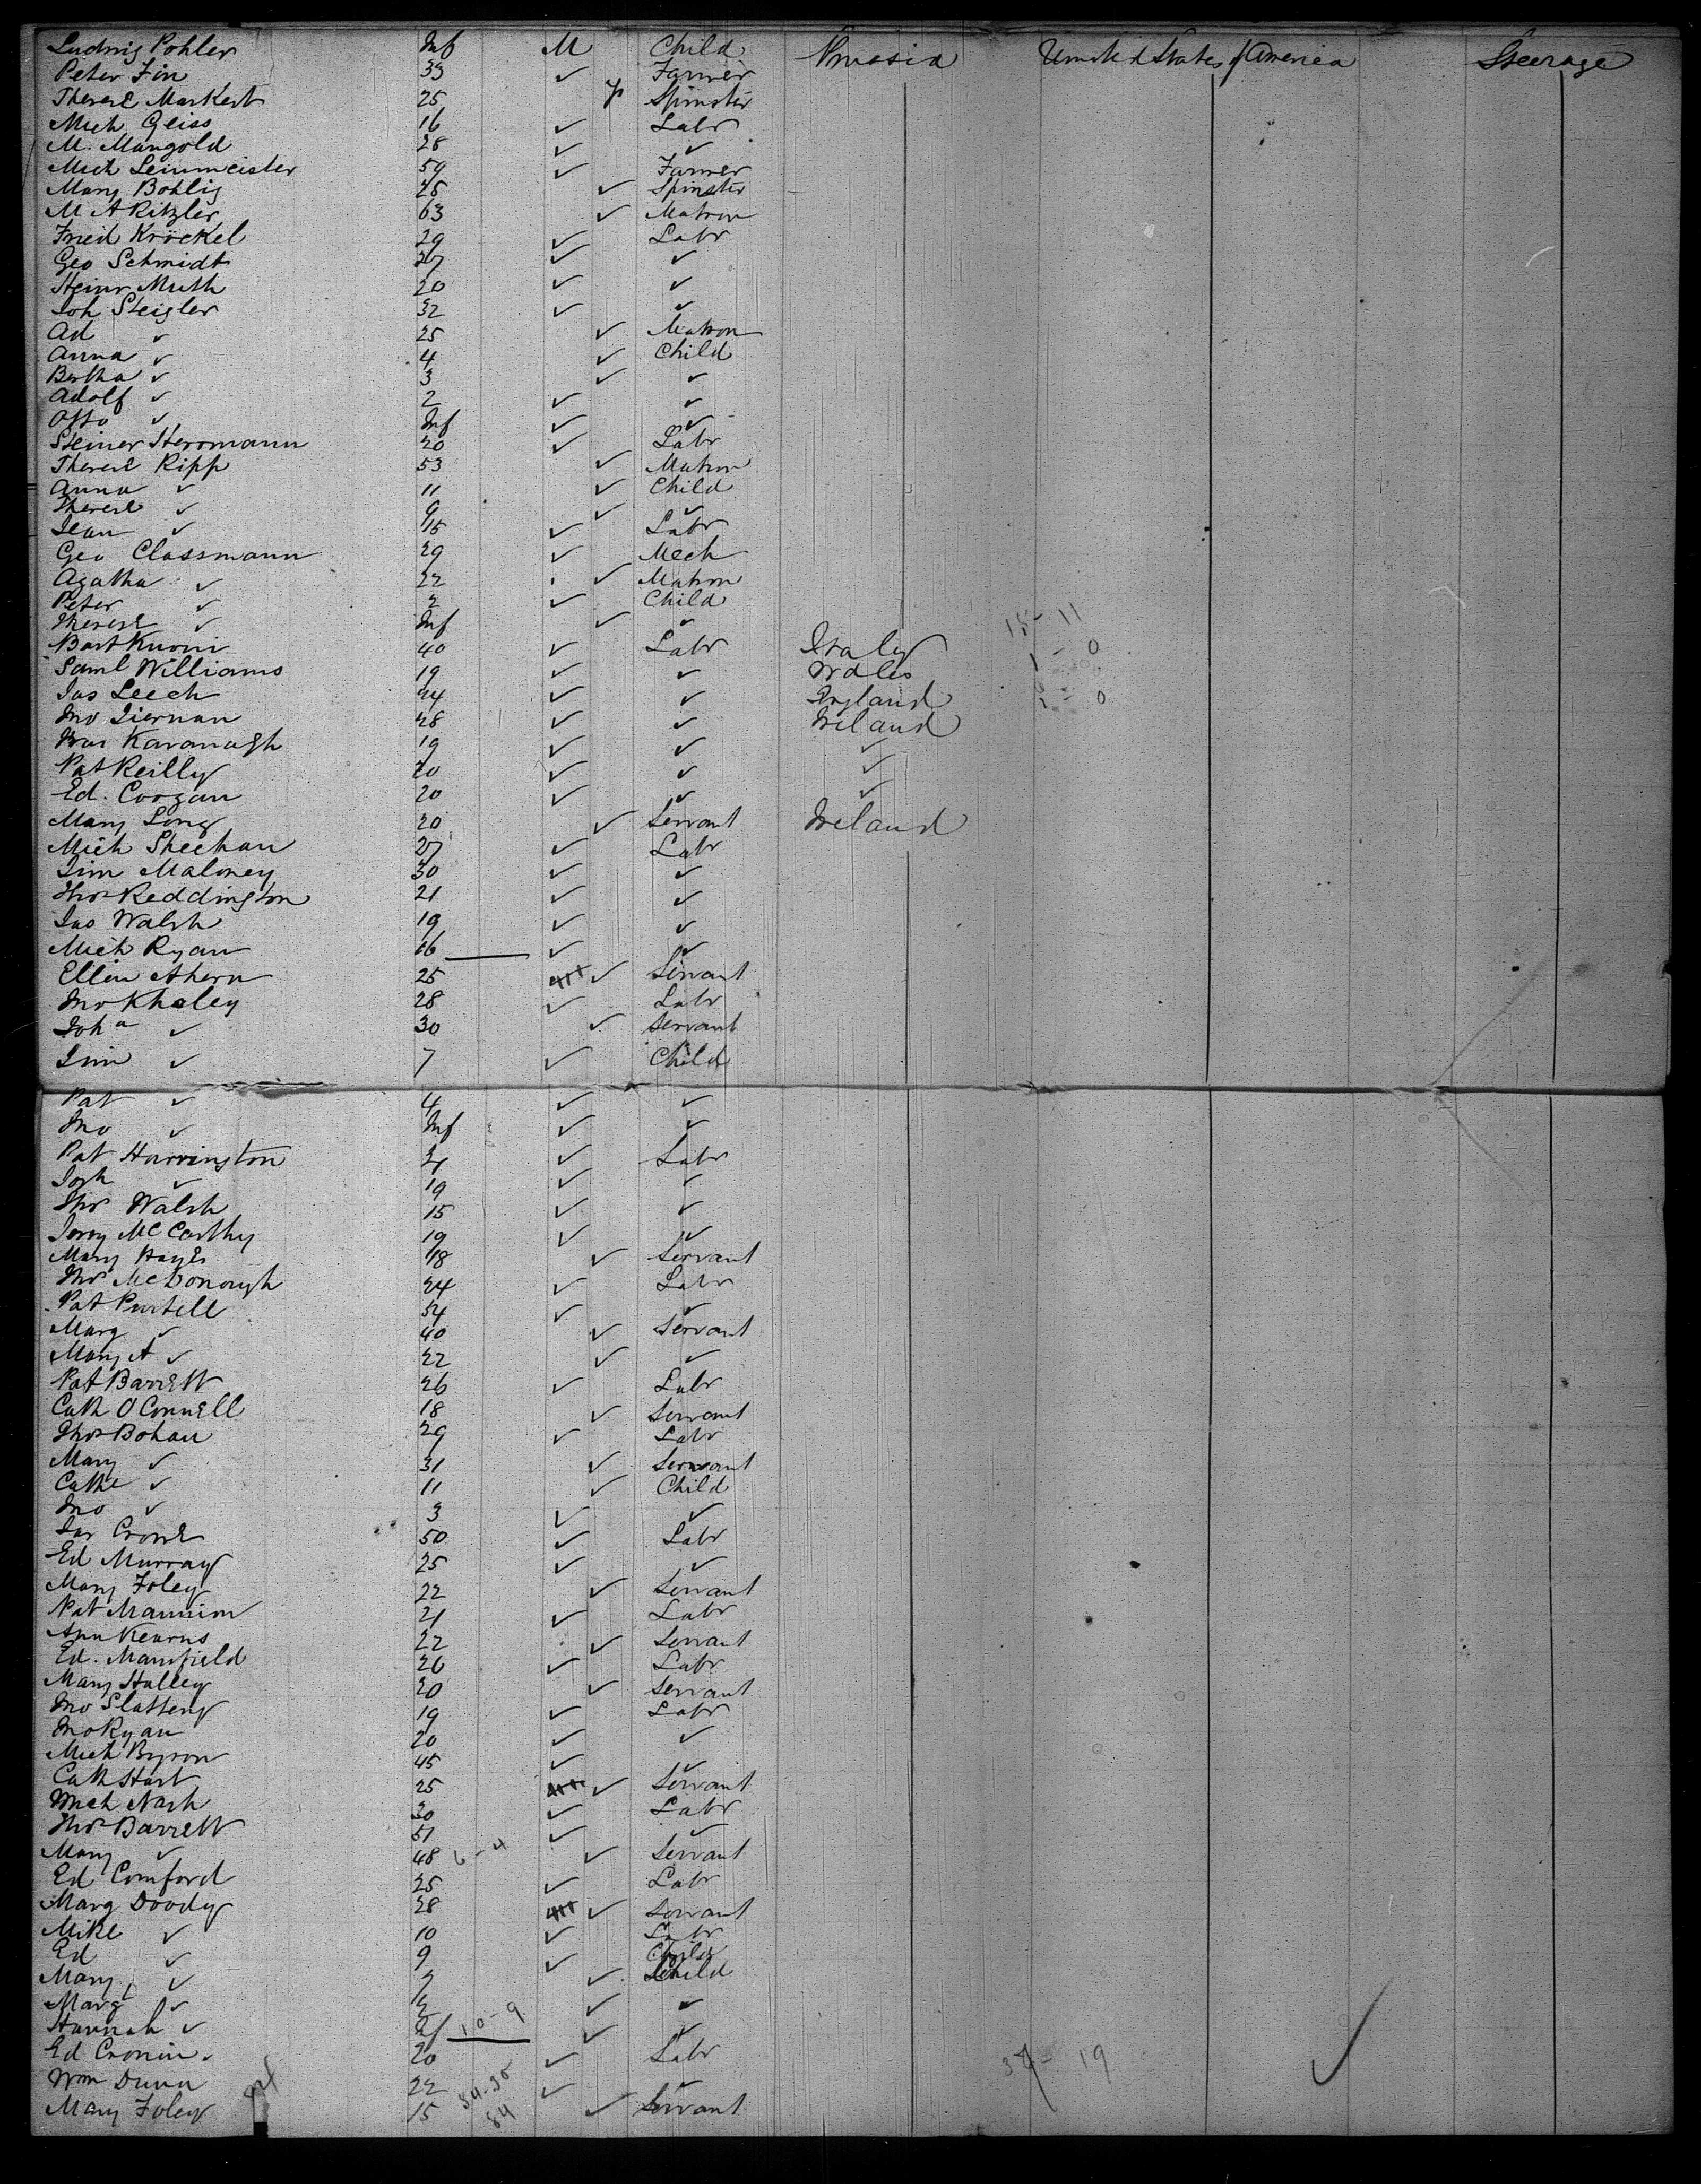 Ludwig Pohler Inf M Child Prussia United States of America Steerage
Peter Fin 33 ✓ Farmer
Therese Markert 25 F Spinster
Mich Geiss 16 ✓ Labr
M. Mangold 28 ✓ ✓
Mich Leinmeister 59 ✓ Farmer
Mary Bohlig 25 ✓ Spinster
M A Ritzler 63 ✓ Matron
Fried Kröckel 29 ✓ Labr
Geo Schmidt 27 ✓ ✓
Heinr Muth 20 ✓ ✓
Joh Steigler 32 ✓ ✓
Ad ✓ 25 ✓ Matron
Anna ✓ 4 ✓ Child
Bertha ✓ 3 ✓ ✓
Adolf ✓ 2 ✓ ✓
Otto ✓ Inf ✓ ✓
Steiner Herrmann 20 ✓ Labr
Therese Ripp 53 ✓ Matron
Anna ✓ 11 ✓ Child
Therese ✓ 9 ✓ ✓
Jean ✓ 15 ✓ Labr
Geo Classmann 29 ✓ Mech
Agatha ✓ 22 ✓ Matron
Peter ✓ 2 ✓ Child
Therese ✓ Inf ✓ ✓
Bart Kuoni 40 ✓ Labr Italy
Saml Williams 19 ✓ ✓ Wales
Jas Leech 44 ✓ ✓ England
Jno Tiernan 48 ✓ ✓ Ireland
Kavanagh 19 ✓ ✓ ✓
Pat Reilly 20 ✓ ✓ ✓
Ed. Coogan 20 ✓ ✓ ✓
Mary Long 20 ✓ Servant Ireland
Mich Sheehan 27 ✓ Labr
Jim Maloney 30 ✓ ✓
Thos Reddington 21 ✓ ✓
Jas Walsh 19 ✓ ✓
Mich Ryan 16 ✓ ✓
Ellen Ahern 25 ✓ Servant
Jno Khaley 28 ✓ Labr
Joha ✓ 30 ✓ Servant
Jim ✓ 7 ✓ Child
Pat ✓ 4 ✓ ✓
Jno ✓ Inf ✓ ✓
Pat Harrington 21 ✓ Labr
Josh ✓ 19 ✓ ✓
Thos Walsh 15 ✓ ✓
Jerry McCarthy 19 ✓ ✓
Mary Hayes 18 ✓ Servant
Thos McDonough 24 ✓ Labr
Pat Purtell 54 ✓ ✓
Marg ✓ 40 ✓ Servant
Mary A ✓ 22 ✓ ✓
Pat Barrett 26 ✓ Labr
Cath O'Connell 18 ✓ Servant
Thos Bohan 29 ✓ Labr
Mary ✓ 31 ✓ Servant
Cathe ✓ 11 ✓ Child
Jno ✓ 3 ✓ ✓
Jas Crowe 50 ✓ Labr
Ed Murray 25 ✓ ✓
Mary Foley 22 ✓ Servant
Pat Mannion 21 ✓ Labr
Ann Kearns 22 ✓ Servant
Ed. Mansfield 26 ✓ Labr
Mary Halley 20 ✓ Servant
Jno Slattery 19 ✓ Labr
Jno Ryan 20 ✓ ✓
Mich Byron 45 ✓ ✓
Cath Hart 25 ✓ Servant
Mich Nash 30 ✓ Labr
Thos Barrett 51 ✓ ✓
Mary ✓ 48 6-4 ✓ Servant
Ed Comford 25 ✓ Labr
Marg Doody 28 ✓ Servant
Mike ✓ 10 ✓ Labr
Ed ✓ 9 ✓ Child
Mary ✓ 7 ✓ Child
Marg ✓ ✓ ✓
Hannah ✓ 10-9 ✓ ✓
Ed Cronin 20 ✓ Labr
Wm Dunn 22 ✓ ✓
Mary Foley 15 84 ✓ Servant